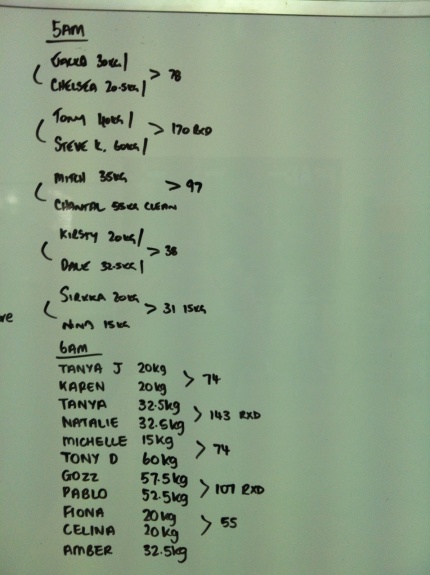 5AM
30KG/
CHELSEA 20.5KG/ > 78
TONY 40KG/
STEVE K. 60KG/ > 170 RXD
MITCH 35KG
CHANTAL 55KG CLEAN > 97
KIRSTY 20KG/
DALE 32.5KG/ > 36
SIRKKA 20KG
NINA 15KG > 31 15KG
6AM
TANYA J 20kg
KAREN 20kg > 74
TANYA 32.5kg
NATALIE 32.5kg > 143 RXD
MICHELLE 15kg
TONY D 60kg > 74
GOZZ 57.5kg
PABLO 52.5kg > 107 RXD
FIONA 20kg
CELINA 20kg > 55
AMBER 32.5kg